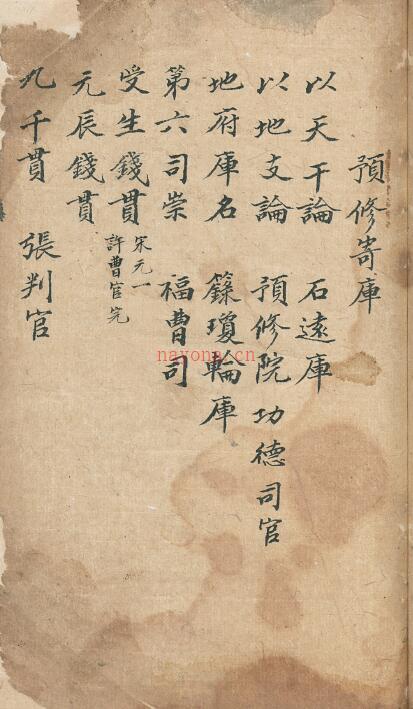 預修寄庫
以天干論　石遠庫
以地支論　預修院　功德司官
地府庫名　籙瓊輪庫
第六司崇　福曹司
受生錢貫　宋元一
許曹官完
元辰錢貫
九千貫　張判官
nayona.cn